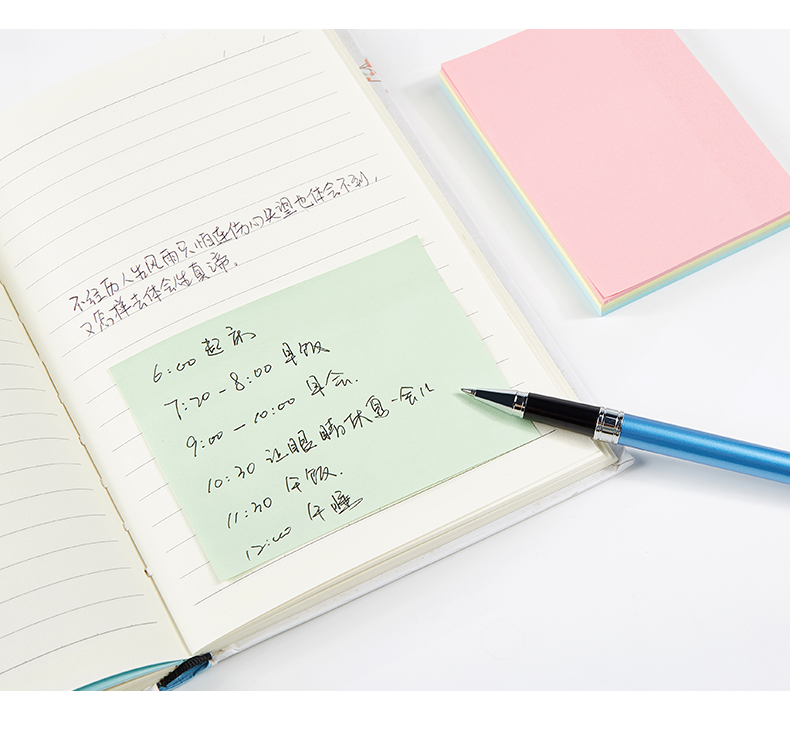 不经历人生风雨只怕连伤心失望也体会不到，
又怎样去体会生真谛。
6:00 起床
7:20-8:00 早饭
9:00-10:00 早会.
10:30 让眼睛休息一会儿
11:30 午饭.
12:00 午睡